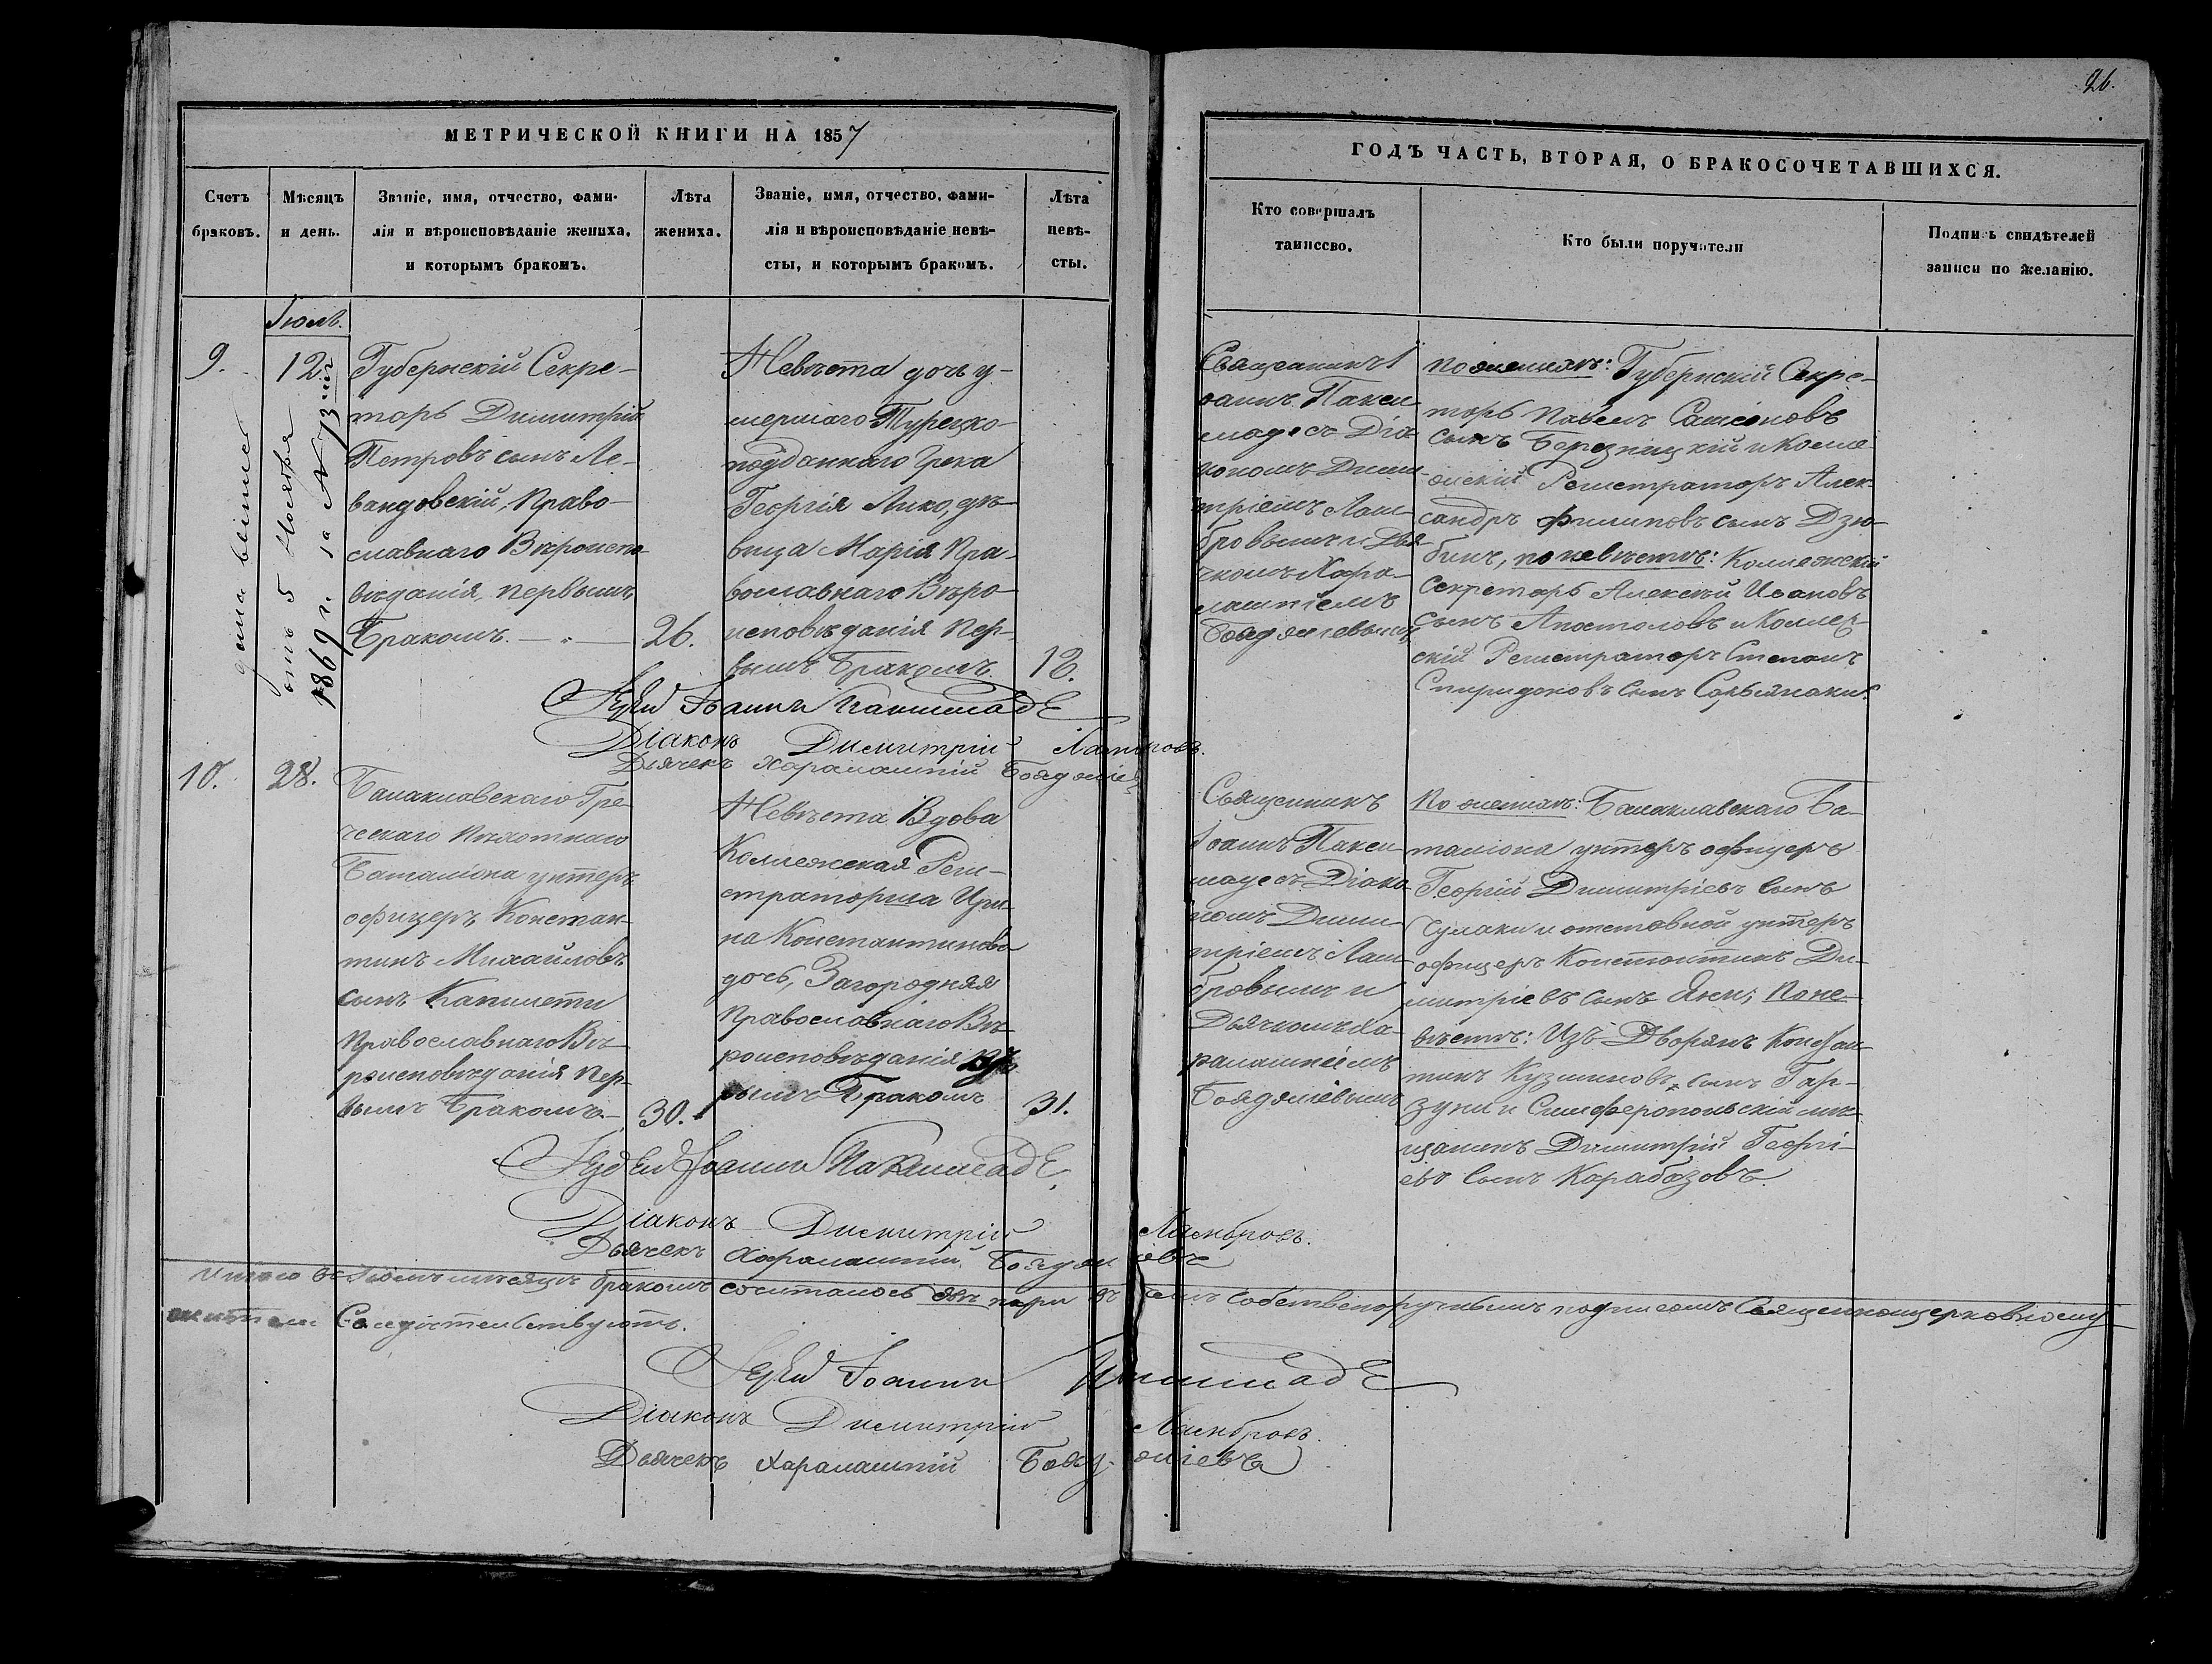 26.
МЕТРИЧЕСКОЙ КНИГИ НА 1857
ГОДЪ ЧАСТЬ, ВТОРАЯ, О БРАКОСОЧЕТАВШИХСЯ.
Счетъ
браковъ.
Мѣсяцъ
и день.
Званіе, имя, отчество, фами-
лія и вѣроисповѣданіе жениха,
и которымъ бракомъ.
Лѣта
жениха.
Званіе, имя, отчество, фами-
лія и вѣроисповѣданіе невѣ-
сты, и которымъ бракомъ.
Лѣта
невѣ-
сты.
Кто совершалъ
таинссво.
Кто были поручители
Подпись свидѣтелей
записи по желанію.
Іюль.
9.
12.
отъ 5 Ноября
1869 г. за №
Губернскій Секре-
тарь Димитрій
Петровъ сынъ Ле-
вандовскій, Право-
славнаго Вѣроиспо-
вѣданія, первымъ
Бракомъ.
26.
Невѣста дочь у-
мершаго Турецко-
подданнаго Грека
Георгія Лико, дѣ-
вица Марія Пра-
вославнаго Вѣро-
исповѣданія Пер-
вымъ Бракомъ.
18.
Священникъ І
оаннъ Пакси
мадесъ Діа
кономъ Дими
тріемъ Лам-
бровымъ и Дья
чкомъ Хара-
лампіемъ
Бояджіевымъ
По женихѣ: Губернскій Секре-
тарь Павелъ Самсоновъ
сынъ Березницкій и Колле
жскій Регистраторъ Алек-
сандръ Филиповъ сынъ Дзю-
бинъ, по невѣстѣ: Коллежскій
Секретарь Алексѣй Ивановъ
сынъ Апостоловъ и Коллеж-
скій Регистраторъ Степанъ
Спиридоновъ сынъ
Іерей Іоаннъ Паксимаде
Діаконъ Димитрій Ламбровъ.
Дьячекъ Харалампій Бояджіевъ
10.
28.
Балаклавскаго Гре-
ческаго Пѣхотнаго
Баталіона унтеръ
офицеръ Констан-
тинъ Михайловъ
сынъ Капитети
Православнаго Вѣ-
роисповѣданія Пер-
вымъ Бракомъ.
30.
Невѣста Вдова
Коллежская Реги-
страторша Ири-
на Константинова
дочь, Загородняя
Православнаго Вѣ-
роисповѣданія
рымъ Бракомъ
31.
Священникъ
Іоаннъ Пакси-
мадесъ Діако-
номъ Дими-
тріемъ Лам-
бровымъ и
Дьячкомъ Ха-
ралампіемъ
Бояджіевымъ
По женихѣ: Балаклавскаго Ба-
таліона унтеръ офицеръ
Георгій Димитріевъ сынъ
Чулаки и отставной унтеръ
офицеръ Константинъ Ди-
митріевъ сынъ Яни, По не-
вѣстѣ: Изъ Дворянъ Констан-
тинъ Кузминовъ сынъ Гар-
зуни и Симферопольскій мѣ-
щанинъ Димитрій Георгі-
евъ сынъ Карабазовъ.
Іерей Іоаннъ Паксимаде
Діаконъ Димитрій Ламбровъ.
Дьячекъ Харалампій Бояджіевъ
Итого въ Іюлѣ мѣсяцѣ бракомъ состоялось двѣ пары въ чемъ собственоручнымъ подписомъ Священноцерковнослу
жители Свидѣтельствуютъ.
Іерей Іоаннъ Паксимаде
Діаконъ Димитрій Ламбровъ.
Дьячекъ Харалампій Бояджіевъ